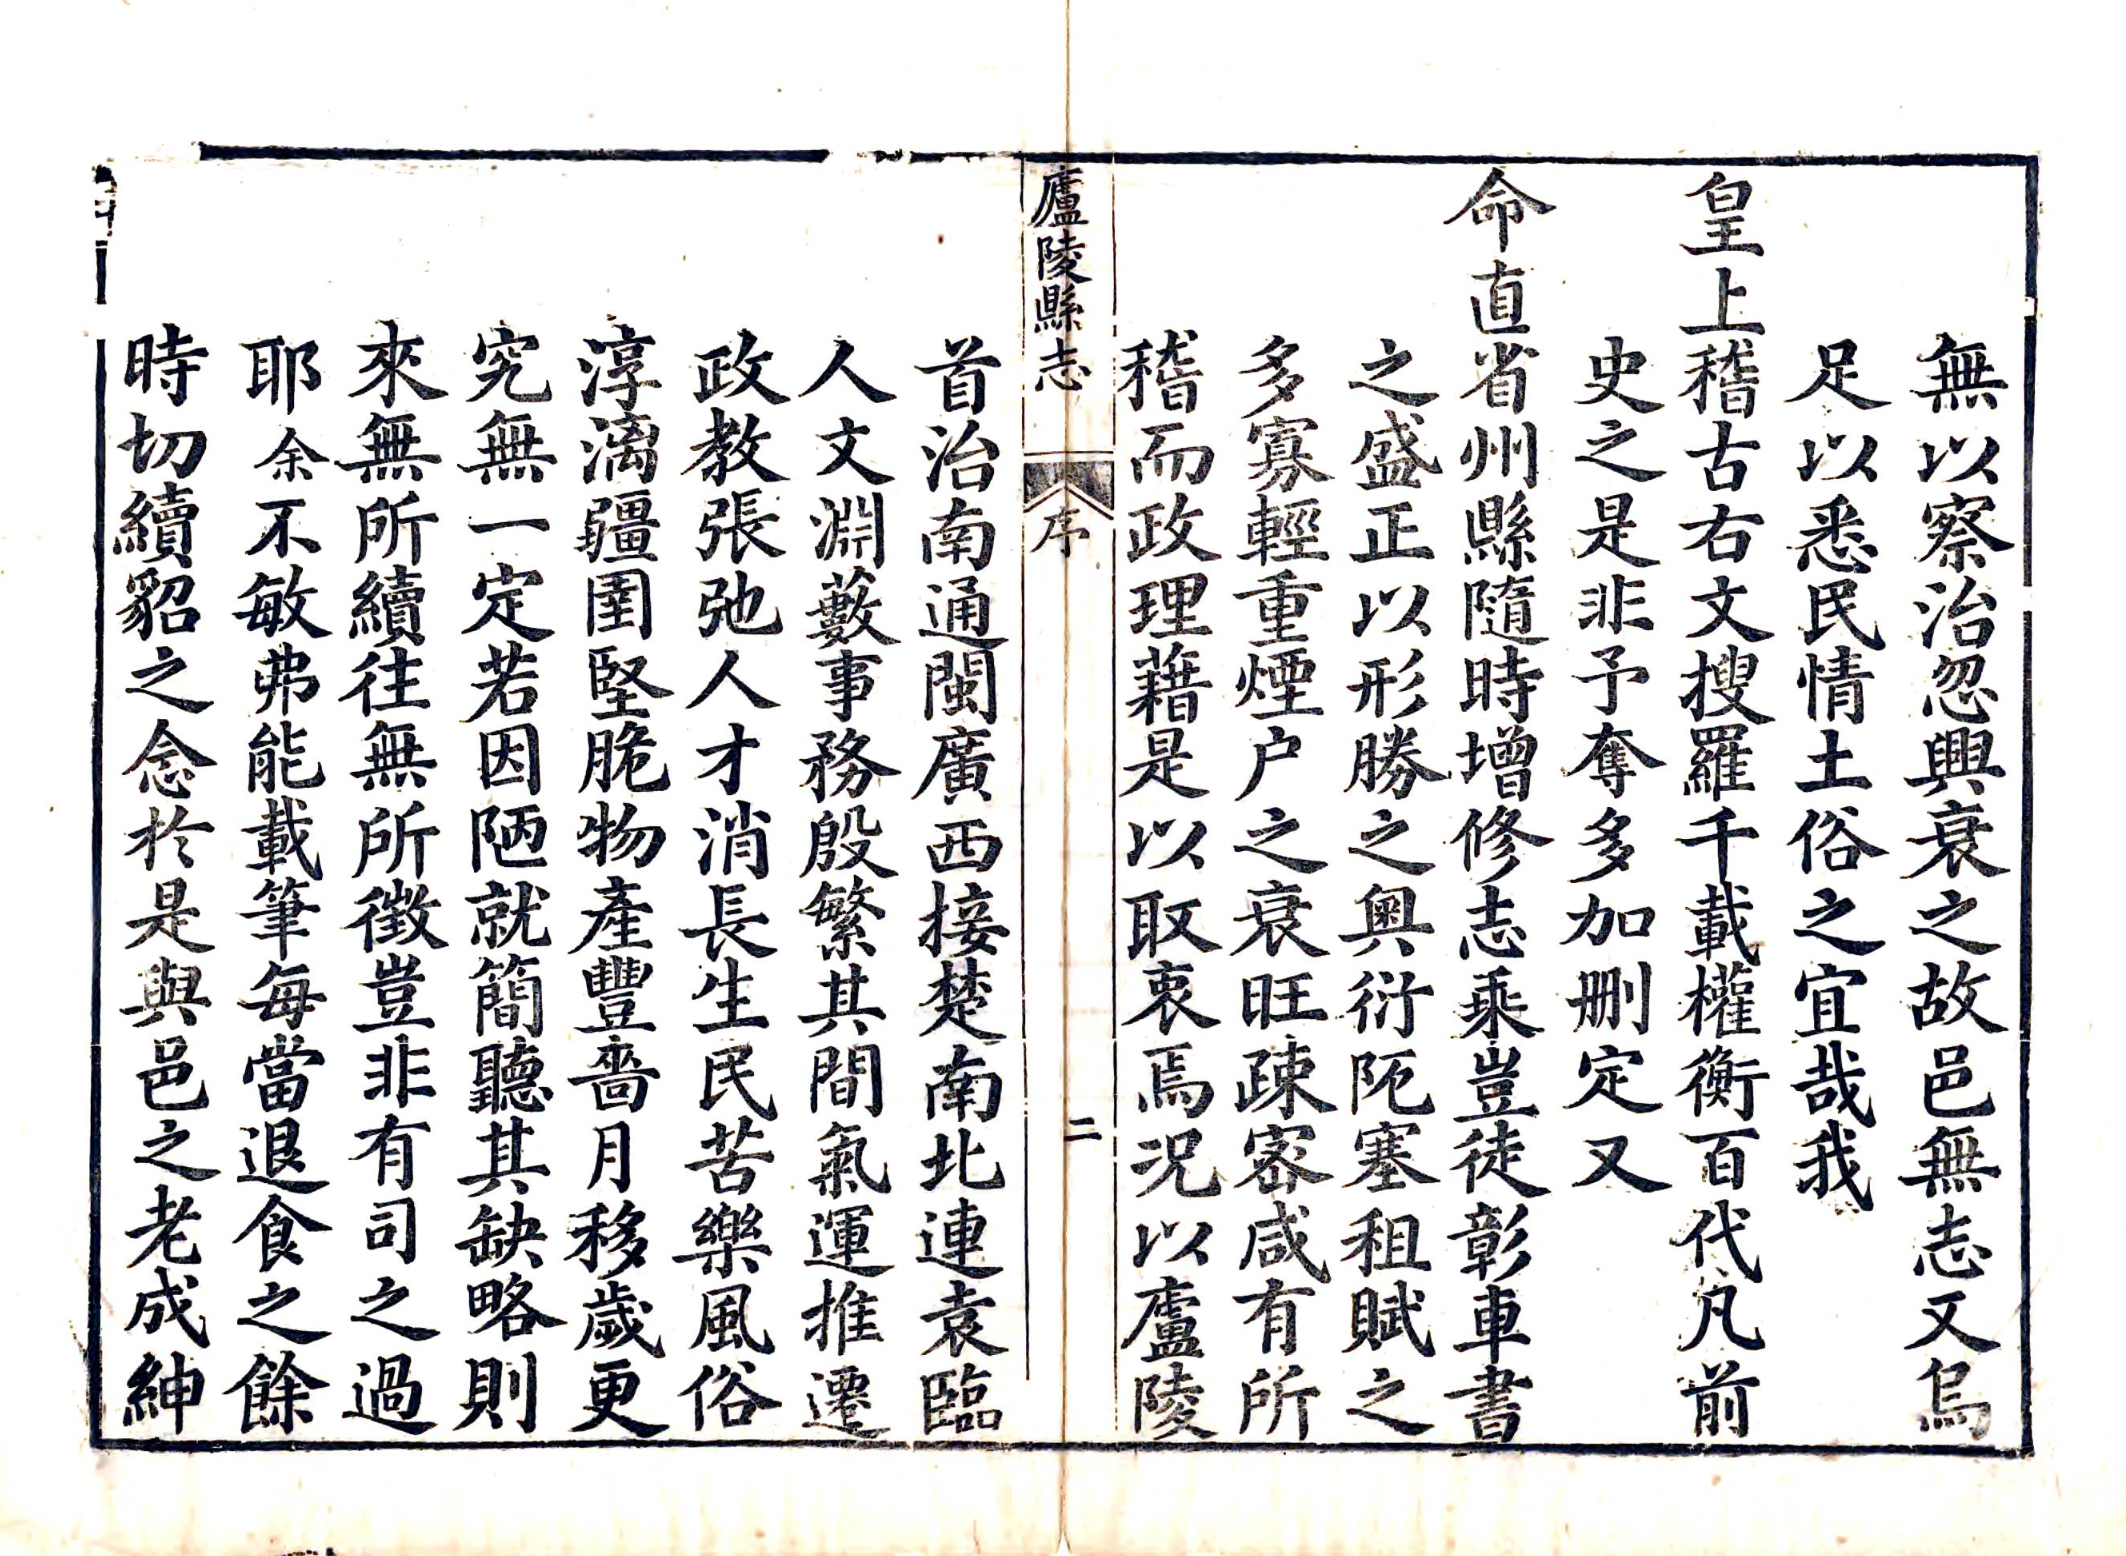 無以察治忽興衰之故邑無志又烏
足以悉民情土俗之宜哉我
皇上稽古右文搜羅千載權衡百代凡前
史之是非予奪多加删定又
命直省州縣隨時增修志乘豈徒彰車書
之盛正以形勝之奥衍阨塞租賦之
多寡輕重煙户之衰旺疎宻咸有所
稽而政理藉是以取衷焉況以廬陵
廬陵縣志
序
二
首治南通閩廣西接楚南北連袁臨
人文淵藪事務殷繁其間氣運推遷
政教張弛人才消長生民苦樂風俗
淳漓疆圉堅脆物產豐嗇月移歲更
究無一定若因陋就簡聽其缺略則
來無所續往無所徵豈非有司之過
耶余不敏弗能載筆每當退食之餘
時切續貂之念於是與邑之老成紳